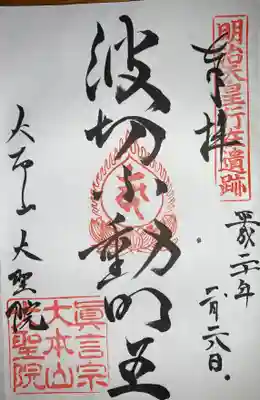 明治天皇行在遺跡
奉拝
平成二十年
波切不動明王
大本山 大聖院
眞言宗
大本山
大聖院